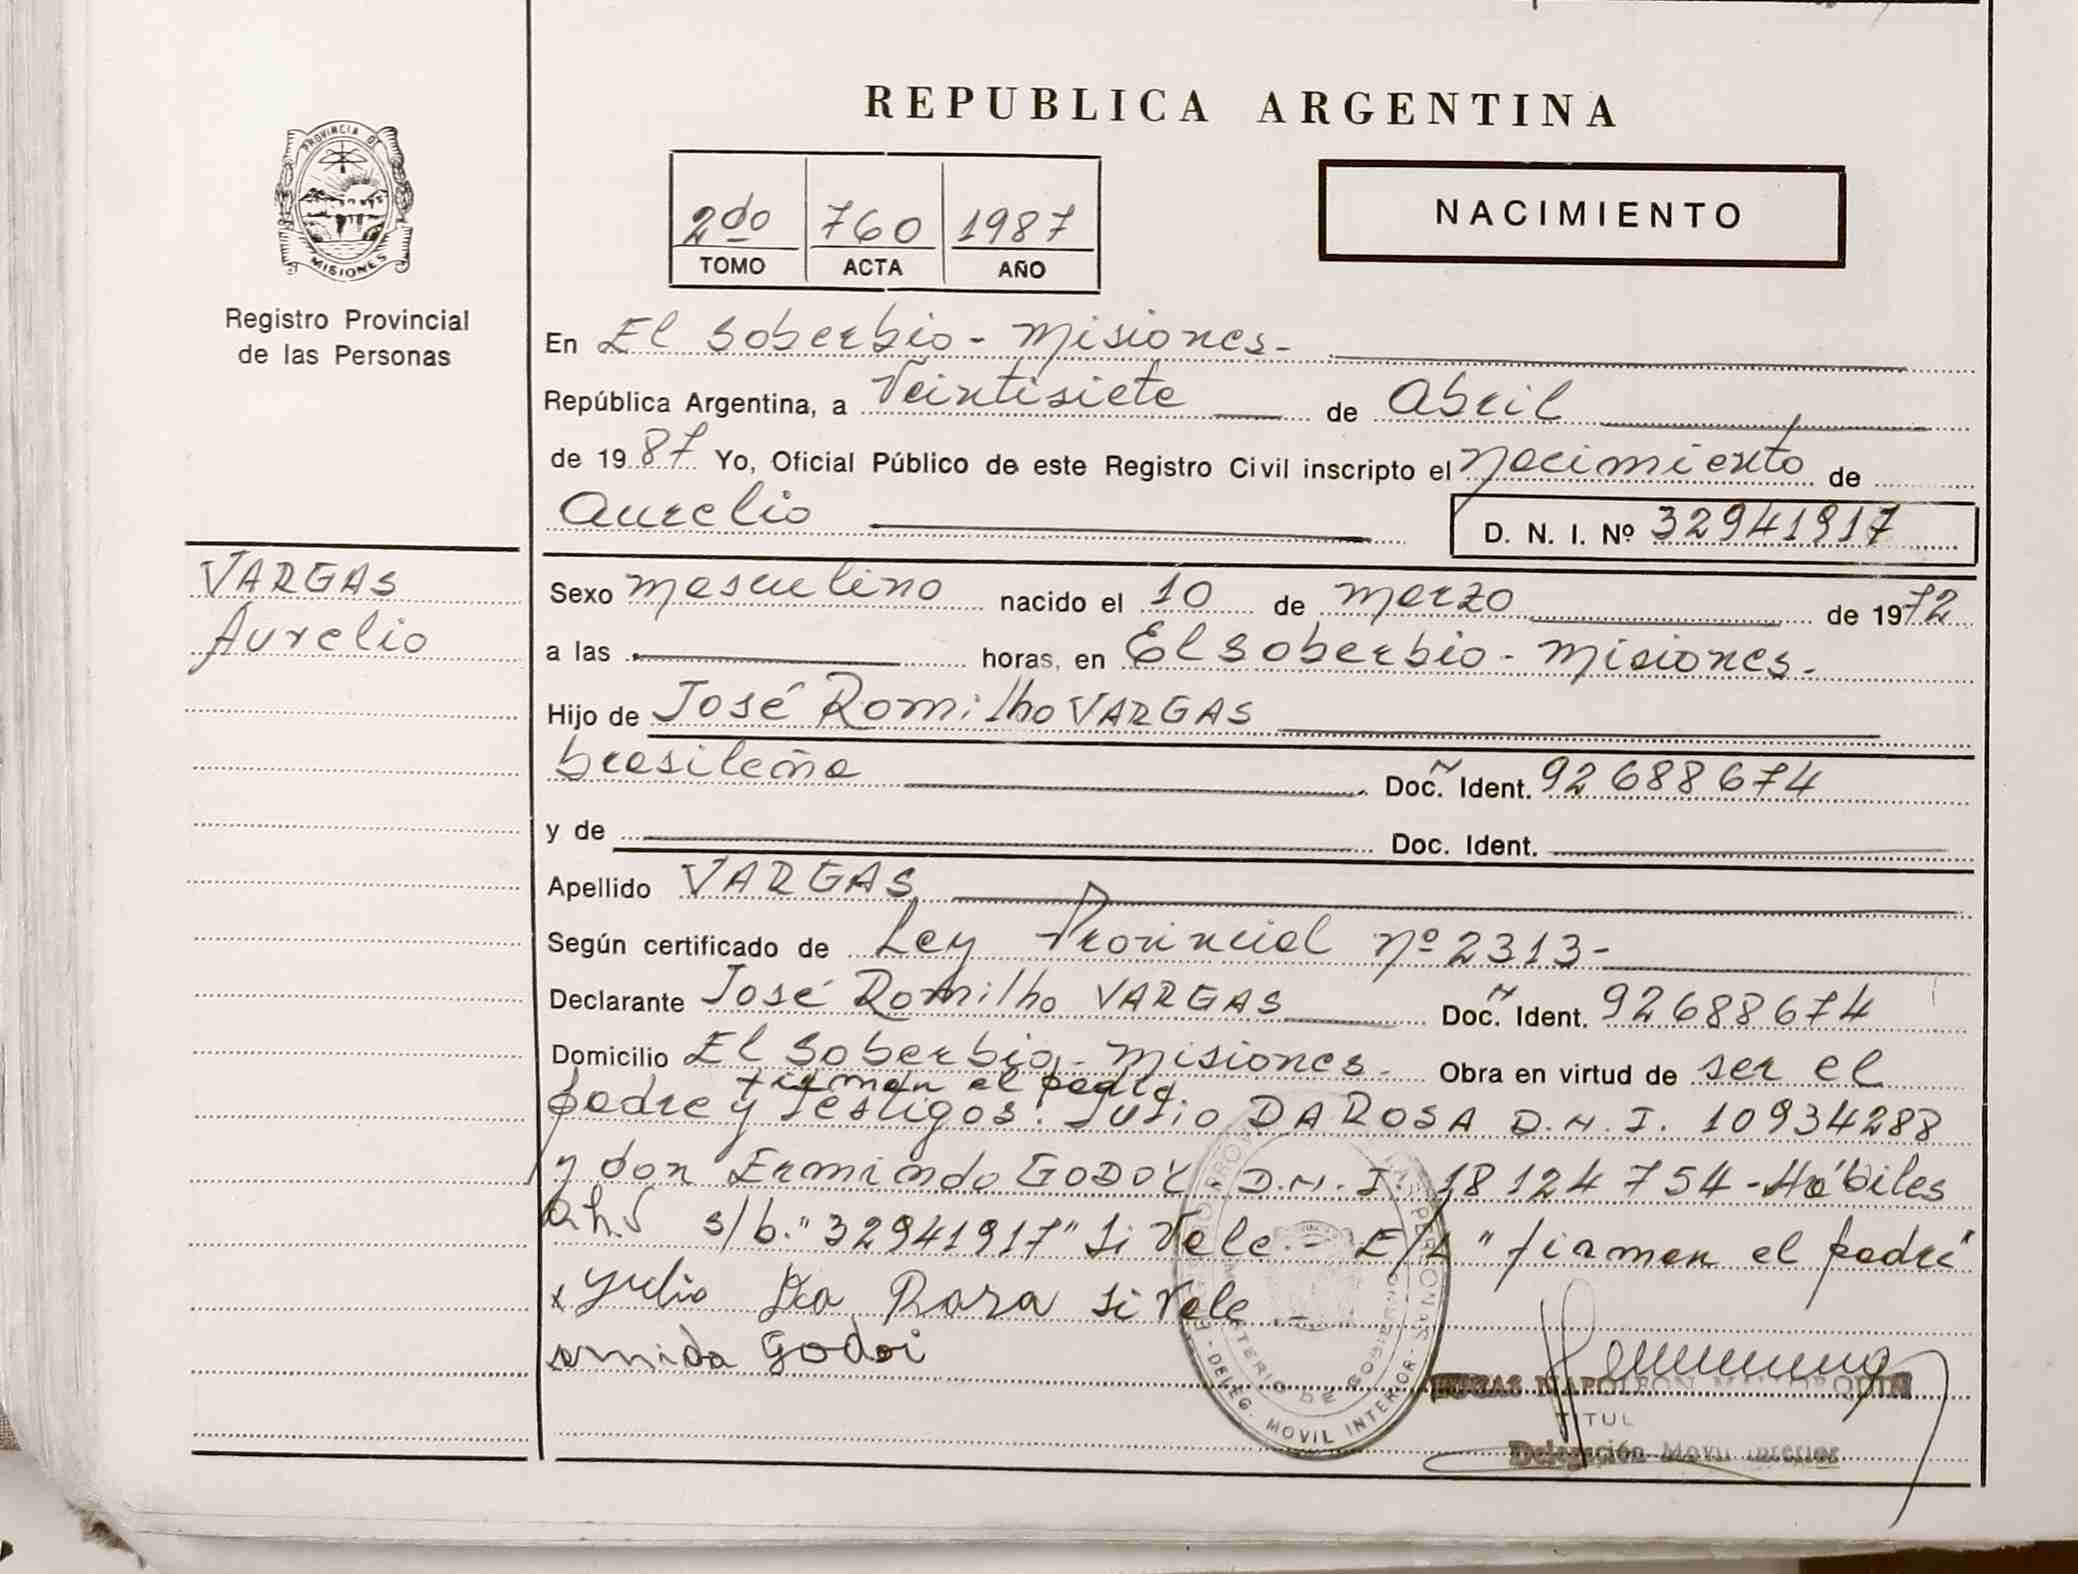 REPUBLICA ARGENTINA
PROVINCIA DE
MISIONES
Registro Provincial
de las Personas
2do 760 1987
TOMO ACTA AÑO
NACIMIENTO
En El Soberbio - Misiones -
República Argentina, a Veintisiete de Abril
de 1987 Yo, Oficial Público de este Registro Civil inscripto el Nacimiento de
Aurelio D. N. I. Nº 32941917
VARGAS
Aurelio
Sexo masculino nacido el 10 de Marzo de 1972
a las horas, en El Soberbio - Misiones -
Hijo de José Romilho VARGAS
brasileña Doc. Ident. 92688674
y de Doc. Ident.
Apellido VARGAS
Según certificado de Ley Provincial nº 2313-
Declarante José Romilho VARGAS Doc. Ident. 92688674
Domicilio El Soberbio - Misiones - Obra en virtud de ser el
firman el padre
padre y testigos: Julio DA ROSA D.N.I. 10934288
y don Ermindo GODOY - D.N.I. 18124754 - Hábiles
s/b. "32941917" Si Vale. - E/L "firman el padre"
x Yulio Da Rosa Si Vale
Godoi
MINISTERIO DE GOBIERNO
DELEG. MOVIL INTERIOR
NAPOLEON
TITUL
Delegación Movil Interior